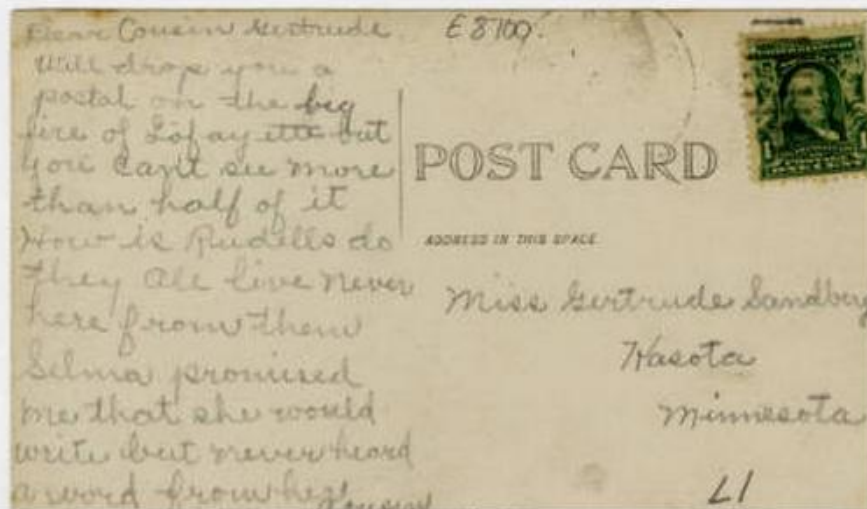 Dear Cousin Gertrude
Will drop you a
postal on the big
fire of Lofayette but
you can't see more
than half of it
How is Rudells do
they all live never
here from them
Selma promised
me that she would
write but never heard
a word from her
Cousin
E 8709.
POST CARD
ADDRESS IN THIS SPACE
Miss Gertrude Sandberg
Kasota
Minnesota
L1
1